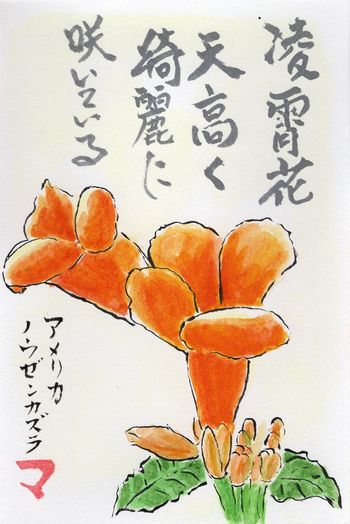 凌霄花
天高く
綺麗に
咲いている
アメリカ
ノウゼンカズラ
マ